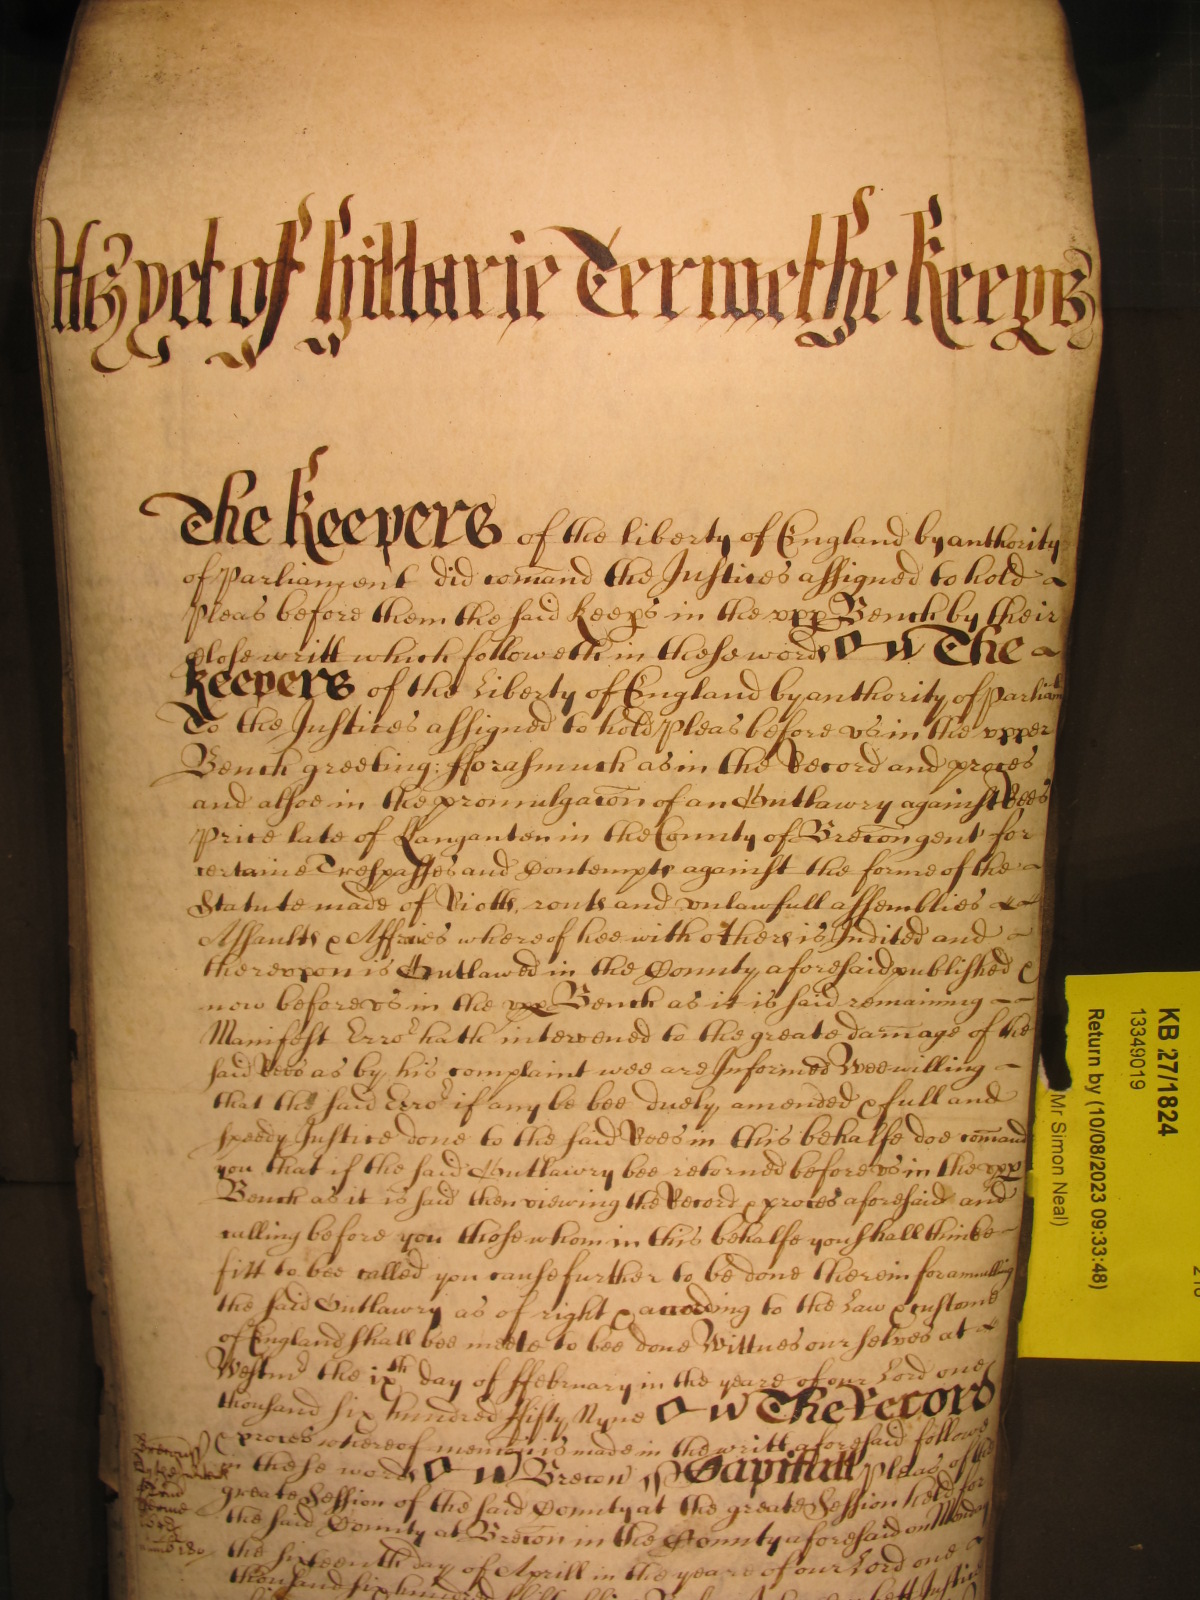 As yet of Hillarie Terme the Keeps
The Keepers of the liberty of England by anthority
of Parliament did comand the Justices assigned to hold
Pleas before them the said keeps in the upp Bench by their
close writt which followeth in these words The
Keepers of the Liberty of England by anthority of Parliam
To the Justices assigned to hold Pleas before us in the upper
Bench greeting: fforasmuch as in the Record and proces
and alsoe in the promulgacon of an Outlawry against Rees
Price late of Langanten in the County of Brecon gent for
certaine Trespasses and Contempts against the forme of the
Statute made of Riotts, routs and unlawfull assemblies
Assaults & Affraies whereof hee with others is Indited and
thereupon is Outlawed in the County aforesaid published &
now before us in the upp Bench as it is said remaining
Manifest Erro hath intervened to the greate damage of the
said Rees as by his complaint wee are Informed Wee willing
that the said Erro if any be bee duely amended & full and
speedy Justice done to the said Rees in this behalfe doe comand
you that if the said Outlawry bee retorned before us in the upp
Bench as it is said then viewing the Record & proces aforesaid and
calling before you those whom in this behalfe you shall thinke
fitt to bee called you cause further to be done therein for annulling
the said Outlawry as of right & according to the Law & custome
of England shall bee meete to bee done Wittnes our selves at
Westmr the ixth day of ffebruary in the yeare of our Lord one
thousand six hundred ffifty Nyne The Record
& proces whereof mencon is made in the writt aforesaid followe
in these words Brecon ss Capitall Pleas of the
greate Session of the said County at the greate Session held for
the said County at Brecon in the County aforesaid on Monday
the sixteenth day of Aprill in the yeare of our Lord one
thousand six hundred
KB 27/1824
13349019
Return by (10/08/2023 09:33:48)
(Mr Simon Neal)